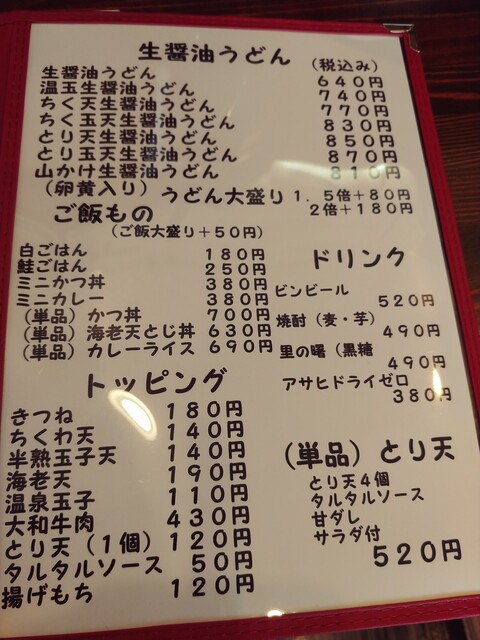 生醤油うどん (税込み)
生醤油うどん 640円
温玉生醤油うどん 740円
ちく天生醤油うどん 770円
ちく玉天生醤油うどん 830円
とり天生醤油うどん 850円
とり玉天生醤油うどん 870円
山かけ生醤油うどん 810円
(卵黄入り) うどん大盛り1.5倍+80円
2倍+180円
ご飯もの
(ご飯大盛り+50円)
白ごはん 180円
鮭ごはん 250円
ミニかつ丼 380円
ミニカレー 380円
(単品)かつ丼 700円
(単品)海老天とじ丼 630円
(単品)カレーライス 690円
ドリンク
ビンビール
520円
焼酎(麦・芋)
490円
里の曙(黒糖
490円
アサヒドライゼロ
380円
トッピング
きつね 180円
ちくわ天 140円
半熟玉子天 140円
海老天 190円
温泉玉子 110円
大和牛肉 430円
とり天(1個) 120円
タルタルソース 50円
揚げもち 120円
(単品)とり天
とり天4個
タルタルソース
甘ダレ
サラダ付
520円